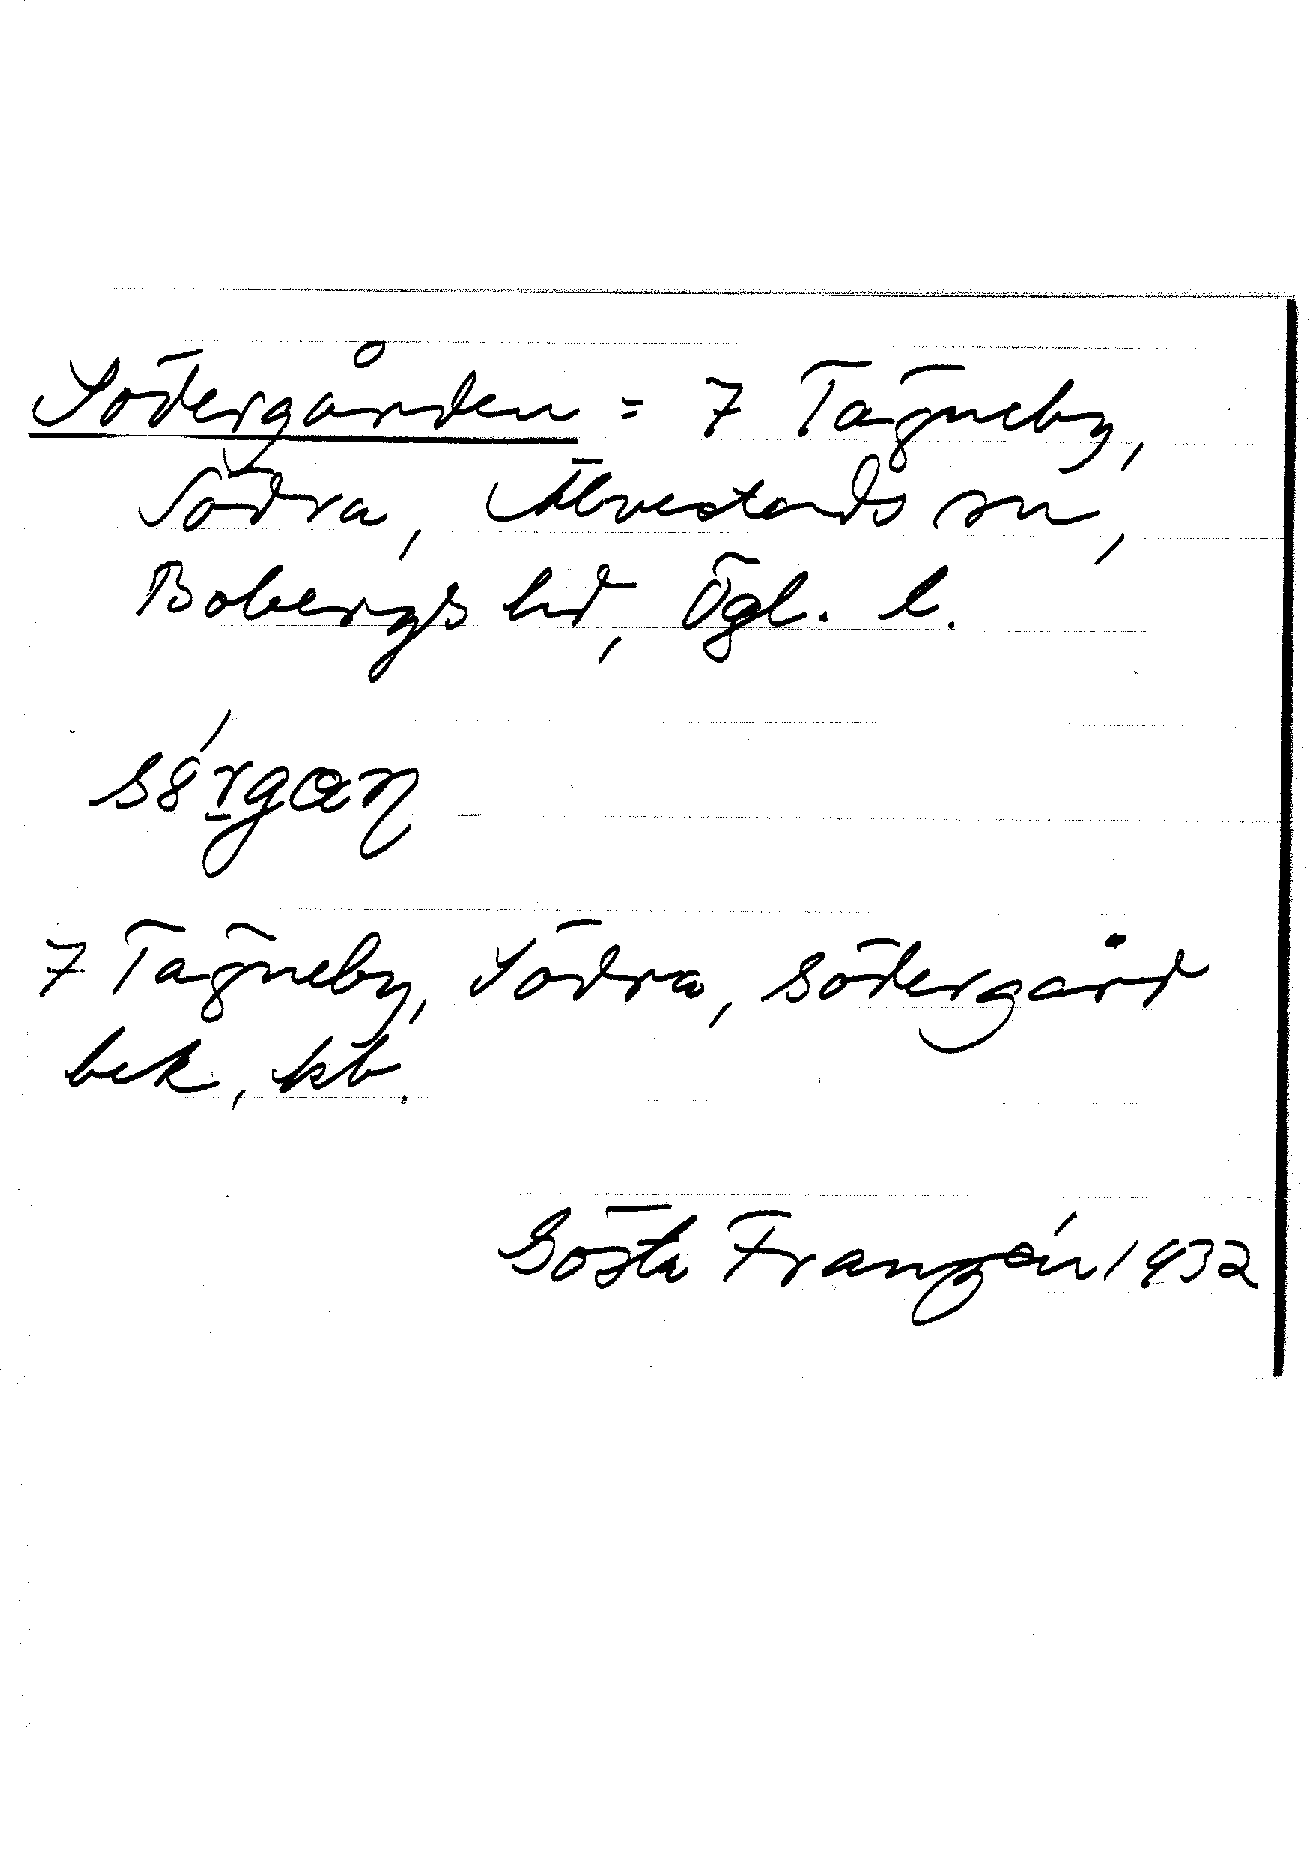 Södergården = 7 Tägneby,
Södra, Älvestads sn,
Bobergs hd, Ögl. l.
7 Tägneby, Södra, södergård
bek, kb.
Gösta Franzén 1932